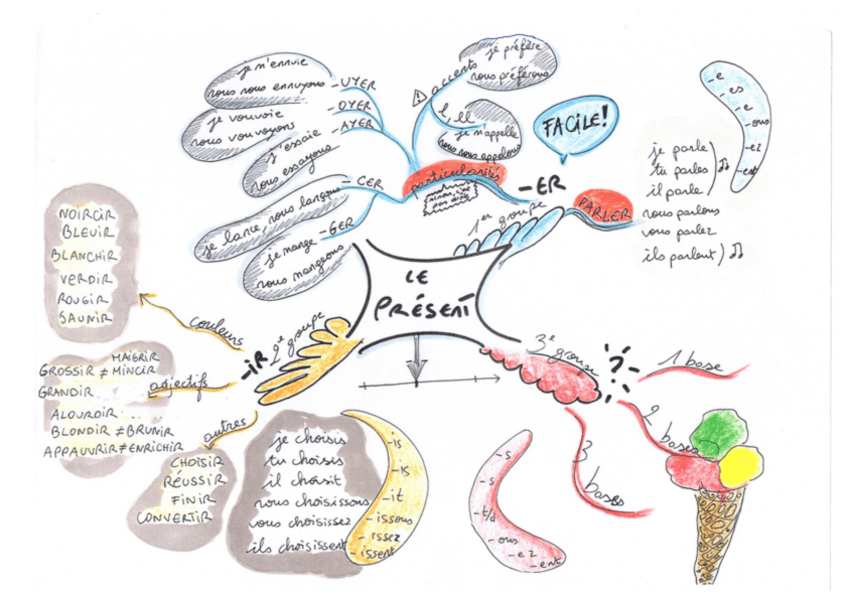 LE
PRÉSENT
1er groupe
-ER
FACILE!
PARLER
je parle
tu parles
il parle
nous parlons
vous parlez
ils parlent
-e
-es
-e
-ons
-ez
-ent
particularités
accents
je préfère
nous préférons
l, ll
je m'appelle
nous nous appelons
-UYER
je m'ennuie
nous nous ennuyons
-OYER
je vouvoie
nous vouvoyons
-AYER
j'essaie
nous essayons
-CER
je lance, nous lançons
-GER
je mange
nous mangeons
2e groupe
-iR
couleurs
NOIRCIR
BLEUIR
BLANCHIR
VERDIR
ROUGIR
JAUNIR
adjectifs
MAIGRIR
GROSSIR ≠ MINCIR
GRANDIR
ALOURDIR ...
BLONDIR ≠ BRUNIR
APPAUVRIR ≠ ENRICHIR
autres
CHOISIR
RÉUSSIR
FINIR
CONVERTIR
je choisis
tu choisis
il choisit
nous choisissons
vous choisissez
ils choisissent
-is
-is
-it
-issons
-issez
-issent
3e groupe
?
1 base
2 bases
3 bases
-s
-s
-t/d
-ons
-ez
-ent